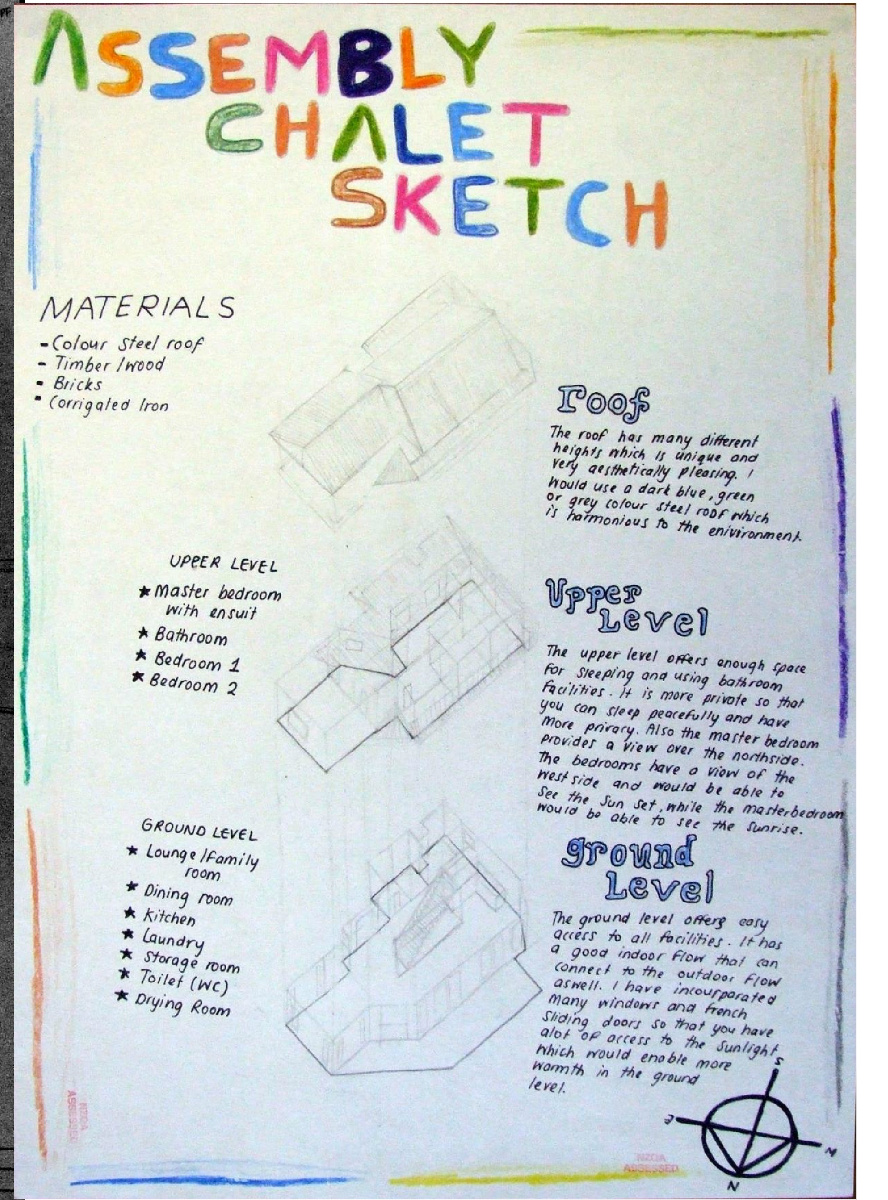 ASSEMBLY
CHALET
SKETCH
MATERIALS
- Colour Steel roof
- Timber /wood
- Bricks
- Corrigated Iron
roof
The roof has many different
heights which is unique and
very aesthetically pleasing. I
would use a dark blue, green
or grey colour steel roof which
is harmonious to the enivironment.
UPPER LEVEL
★ Master bedroom
with ensuit
★ Bathroom
★ Bedroom 1
★ Bedroom 2
Upper
Level
The upper level offers enough space
for sleeping and using bathroom
facilities. It is more private so that
you can sleep peacefully and have
more privacy. Also the master bedroom
provides a view over the northside.
The bedrooms have a view of the
west side and would be able to
see the sun set, while the masterbedroom
would be able to see the sunrise.
GROUND LEVEL
★ Lounge/Family
room
★ Dining room
★ Kitchen
★ Laundry
★ Storage room
★ Toilet (WC)
★ Drying Room
ground
Level
The ground level offers easy
access to all facilities. It has
a good indoor flow that can
connect to the outdoor flow
aswell. I have incourparated
many windows and french
sliding doors so that you have
alot of access to the sunlight
which would enable more
warmth in the ground
level.
S
N
NZQA
ASSESSED
NZQA
ASSESSED